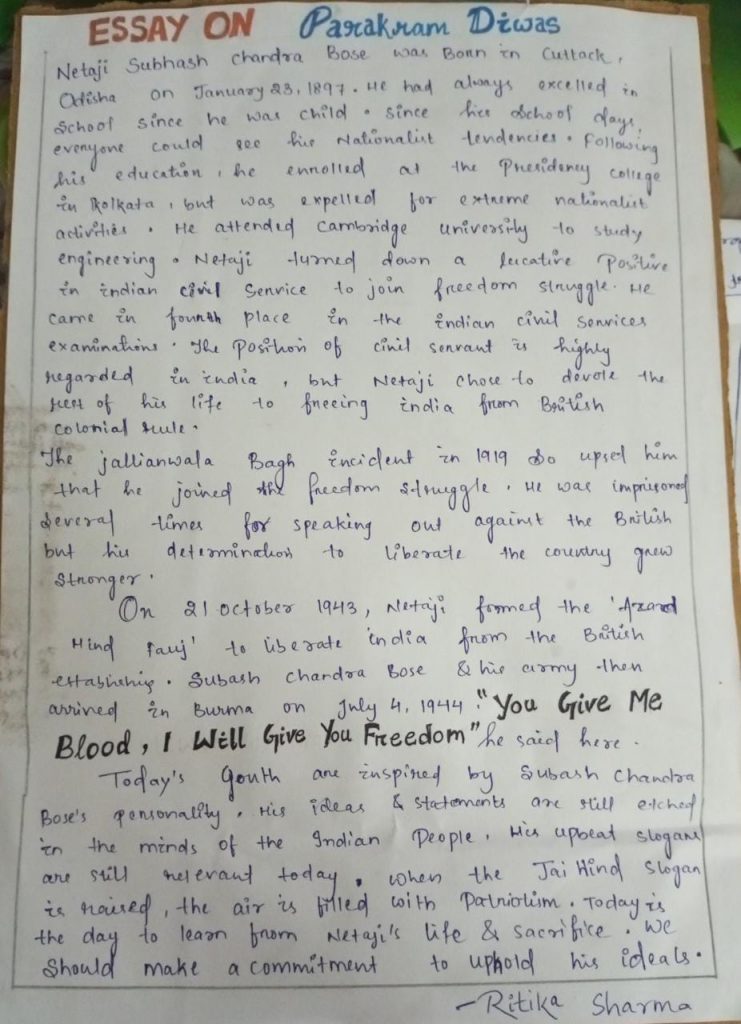 ESSAY ON Parakram Diwas
Netaji Subhash Chandra Bose was Born in Cuttack,
Odisha on January 23, 1897. He had always excelled in
School since he was child. Since his school days,
everyone could see his Nationalist tendencies. Following
his education, he enrolled at the Presidency college
in Kolkata, but was expelled for extreme nationalist
activities. He attended Cambridge university to study
engineering. Netaji turned down a lucative Positive
in indian civil Service to join freedom struggle. He
came in fourth place in the indian civil Services
examinations. The Position of civil servant is highly
regarded in india, but Netaji chose to devote the
rest of his life to freeing india from British
colonial rule.
The jallianwala Bagh incident in 1919 so upset him
that he joined the freedom struggle. He was imprisoned
several times for speaking out against the British
but his determination to liberate the country grew
stronger.
On 21 october 1943, Netaji formed the 'Azard
Hind Fauj' to liberate india from the British
. Subash Chandra Bose & his army then
arrived in Burma on July 4, 1944. "You Give Me
Blood, I Will Give You Freedom" he said here.
Today's youth are inspired by Subash Chandra
Bose's personality. His ideas & statements are still etched
in the minds of the Indian People. His upbeat slogans
are still relevant today. when the Jai Hind slogan
is raised, the air is filled with Patriotism. Today is
the day to learn from Netaji's life & sacrifice. We
should make a commitment to uphold his ideals.
-Ritika Sharma